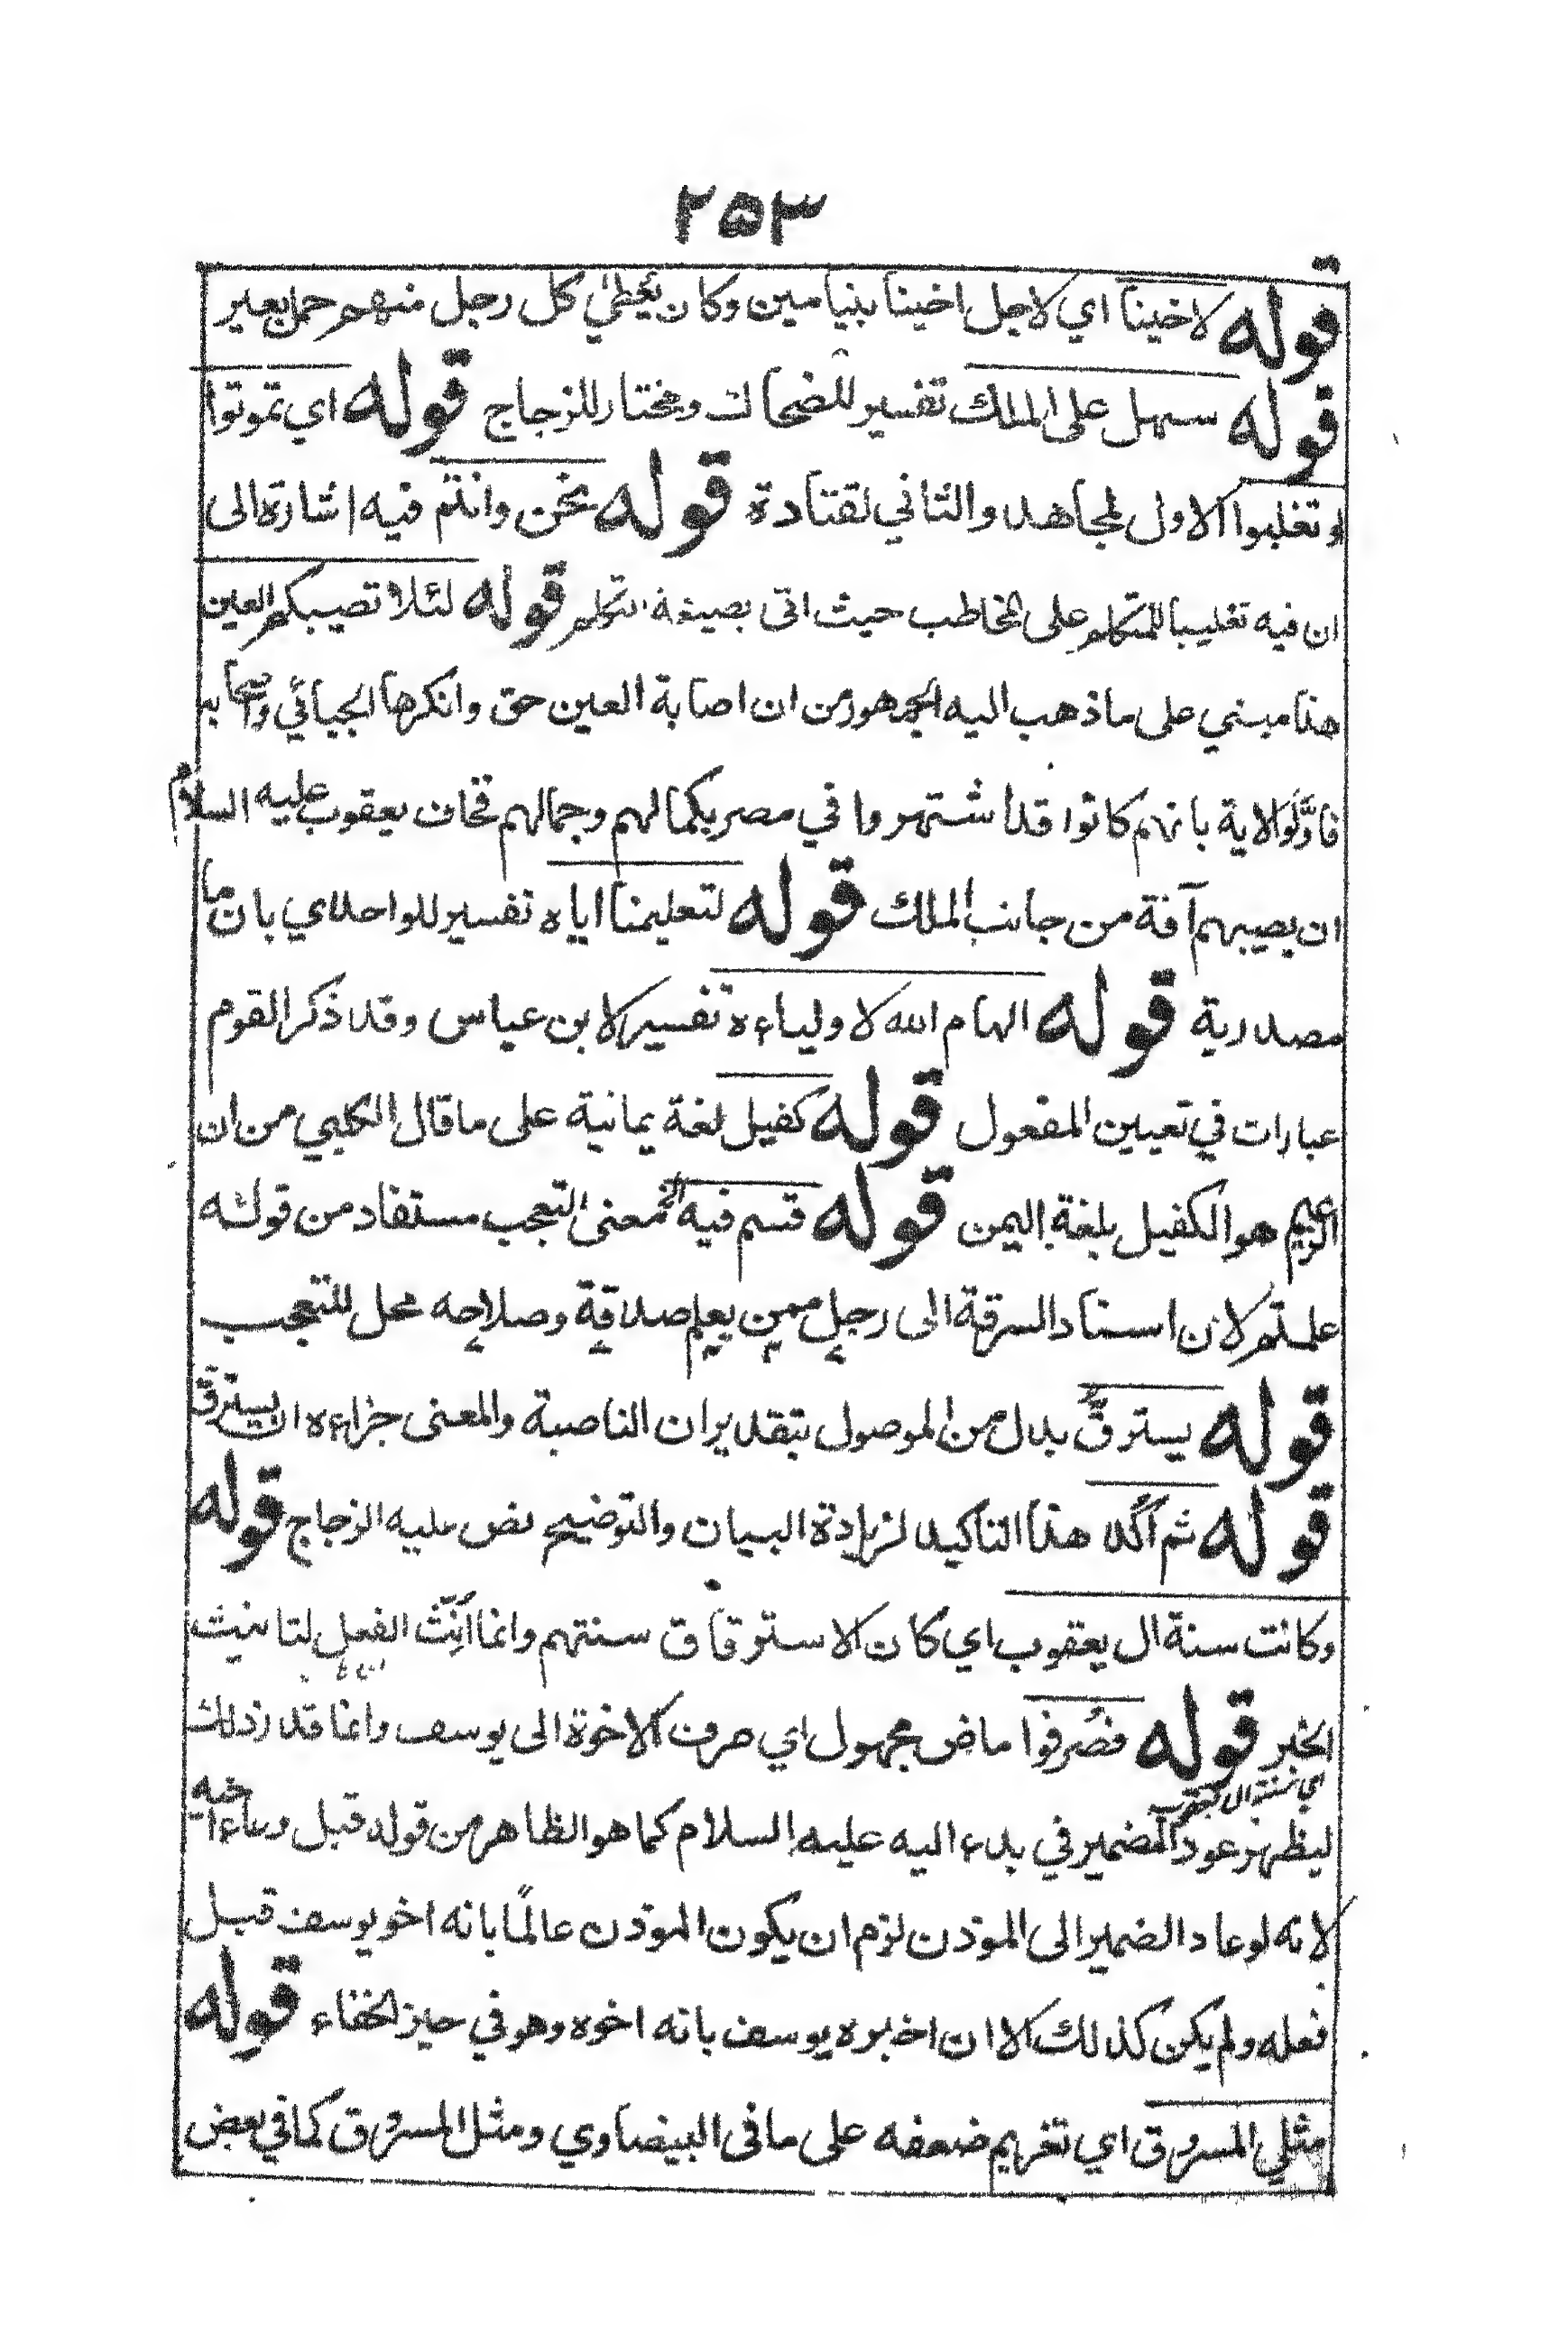 ۲۵۳
قوله لاخينا اي لاجل اخينا بنيامين وكان يُعطي كل رجل منهم حمل بعير
قوله سهل على الملك تفسير للضحاك ومختار للزجاج قوله اي تموتوا
او تغلبوا الاول لمجاهد والثاني لقتادة قوله نحن وانتم فيه اشارة الى
ان فيه تغليبا للمتكلم على المخاطب حيث اتى بصيغة التكلم قوله لئلا تصيبكم العين
هذا مبني على ما ذهب اليه الجمهور من ان اصابة العين حق وانكرها الجبائي واصحابه
فاوّلوا الاية بانهم كانوا قد اشتهروا في مصر بكمالهم وجمالهم فخاف يعقوب عليه السلام
ان يصيبهم آفة من جانب الملك قوله لتعليمنا اياه تفسير للواحدي بان ما
مصدرية قوله الهام الله لاولياءه تفسير لابن عباس وقد ذكر القوم
عبارات في تعيين المفعول قوله كفيل لغة يمانية على ما قال الكلبي من ان
الزعيم هو الكفيل بلغة اليمن قوله قسم فيه الخ معنى التعجب مستفاد من قوله
علمتم لان اسناد السرقة الى رجل ممن يعلم صداقة وصلاحه محل للتعجب
قوله يسترقّ بدل من الموصول بتقدير ان الناصبة والمعنى جزاءه ان يسترق
قوله ثم اكّد هذا التاكيد لزيادة البيان والتوضيح نص عليه الزجاج قوله
وكانت سنة ال يعقوب اي كان الاسترقاق سنتهم وانما اَنّث الفعل لتانيث
الخبر قوله فصُرفوا ماض مجهول اي صرف الاخوة الى يوسف وانما قدر ذلك
ليظهر عود الضمير في بدء اليه عليه السلام كما هو الظاهر من قوله قبل وعاء اخيه
لانه لو عاد الضمير الى المؤذن لزم ان يكون المؤذن عالمًا بانه اخو يوسف قبل
فعله ولم يكن كذلك الا ان اخبره يوسف بانه اخوه وهو في حيز الخفاء قوله
مثلي المسروق اي تغريم ضعفه على ما فى البيضاوي ومثل المسروق كما في بعض